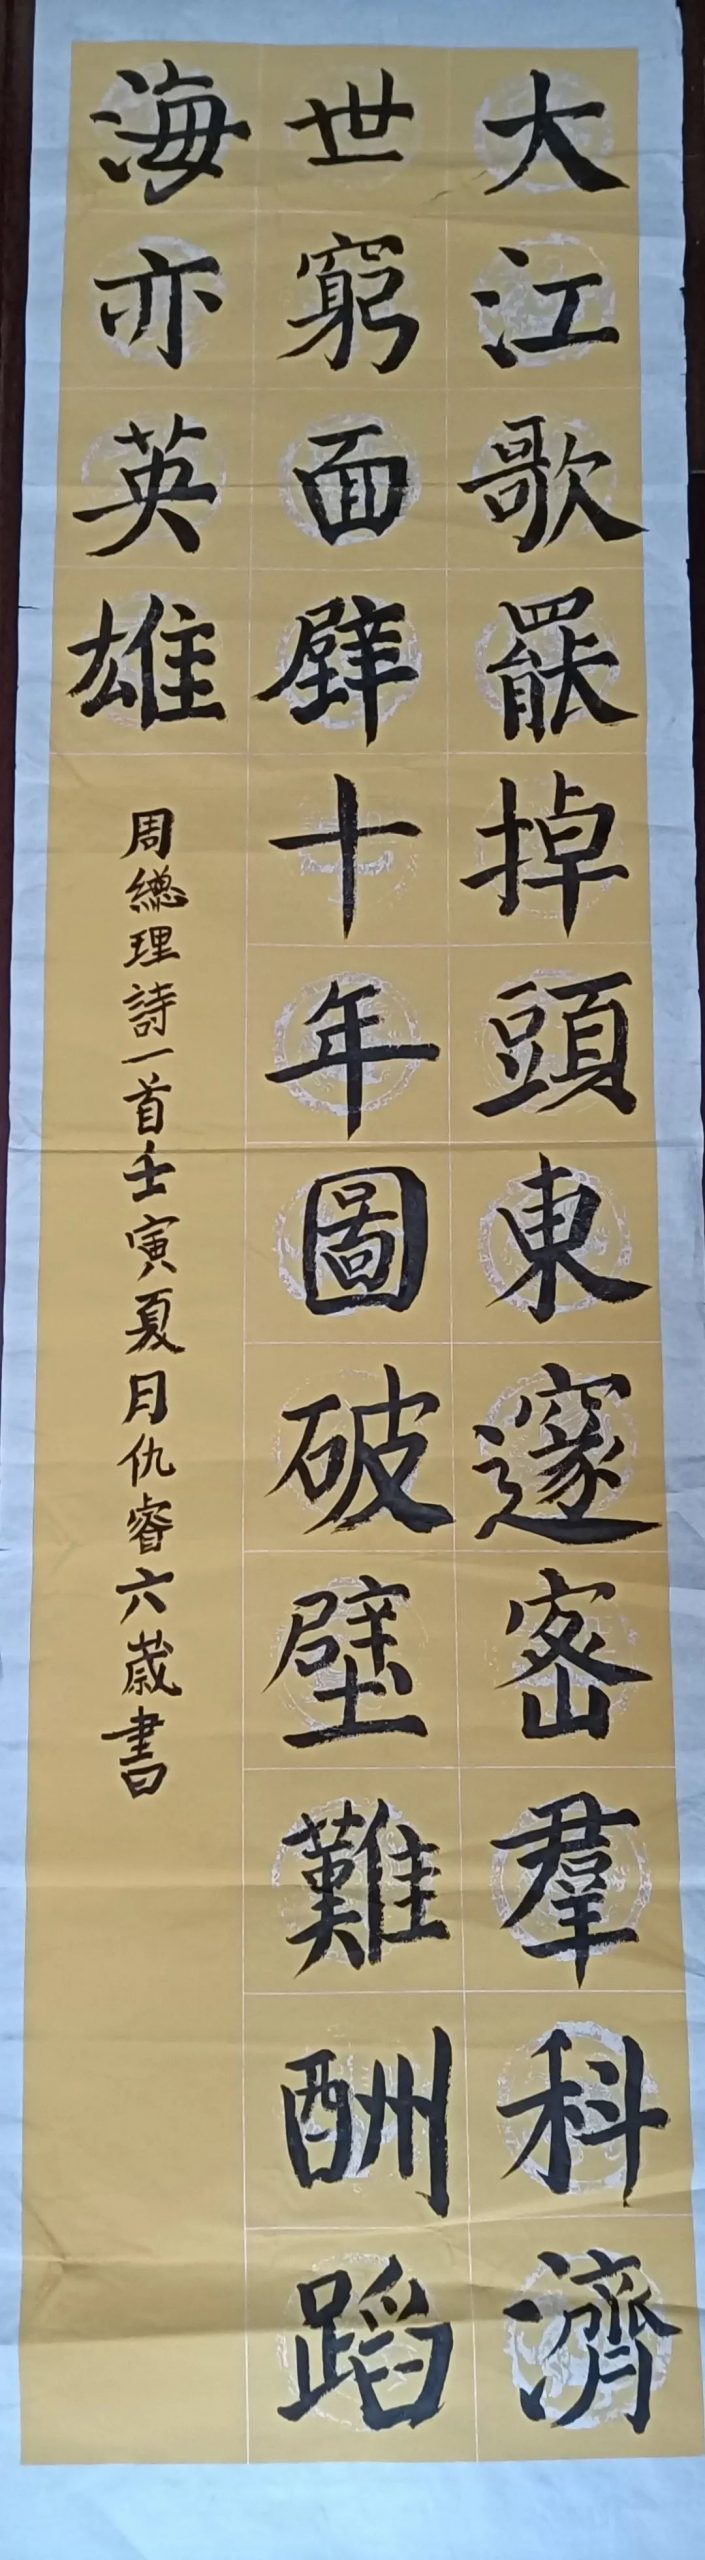 大江歌罷掉頭東邃密羣科濟
世窮面壁十年圖破壁難酬蹈
海亦英雄
周總理詩一首壬寅夏月仇睿六歲書